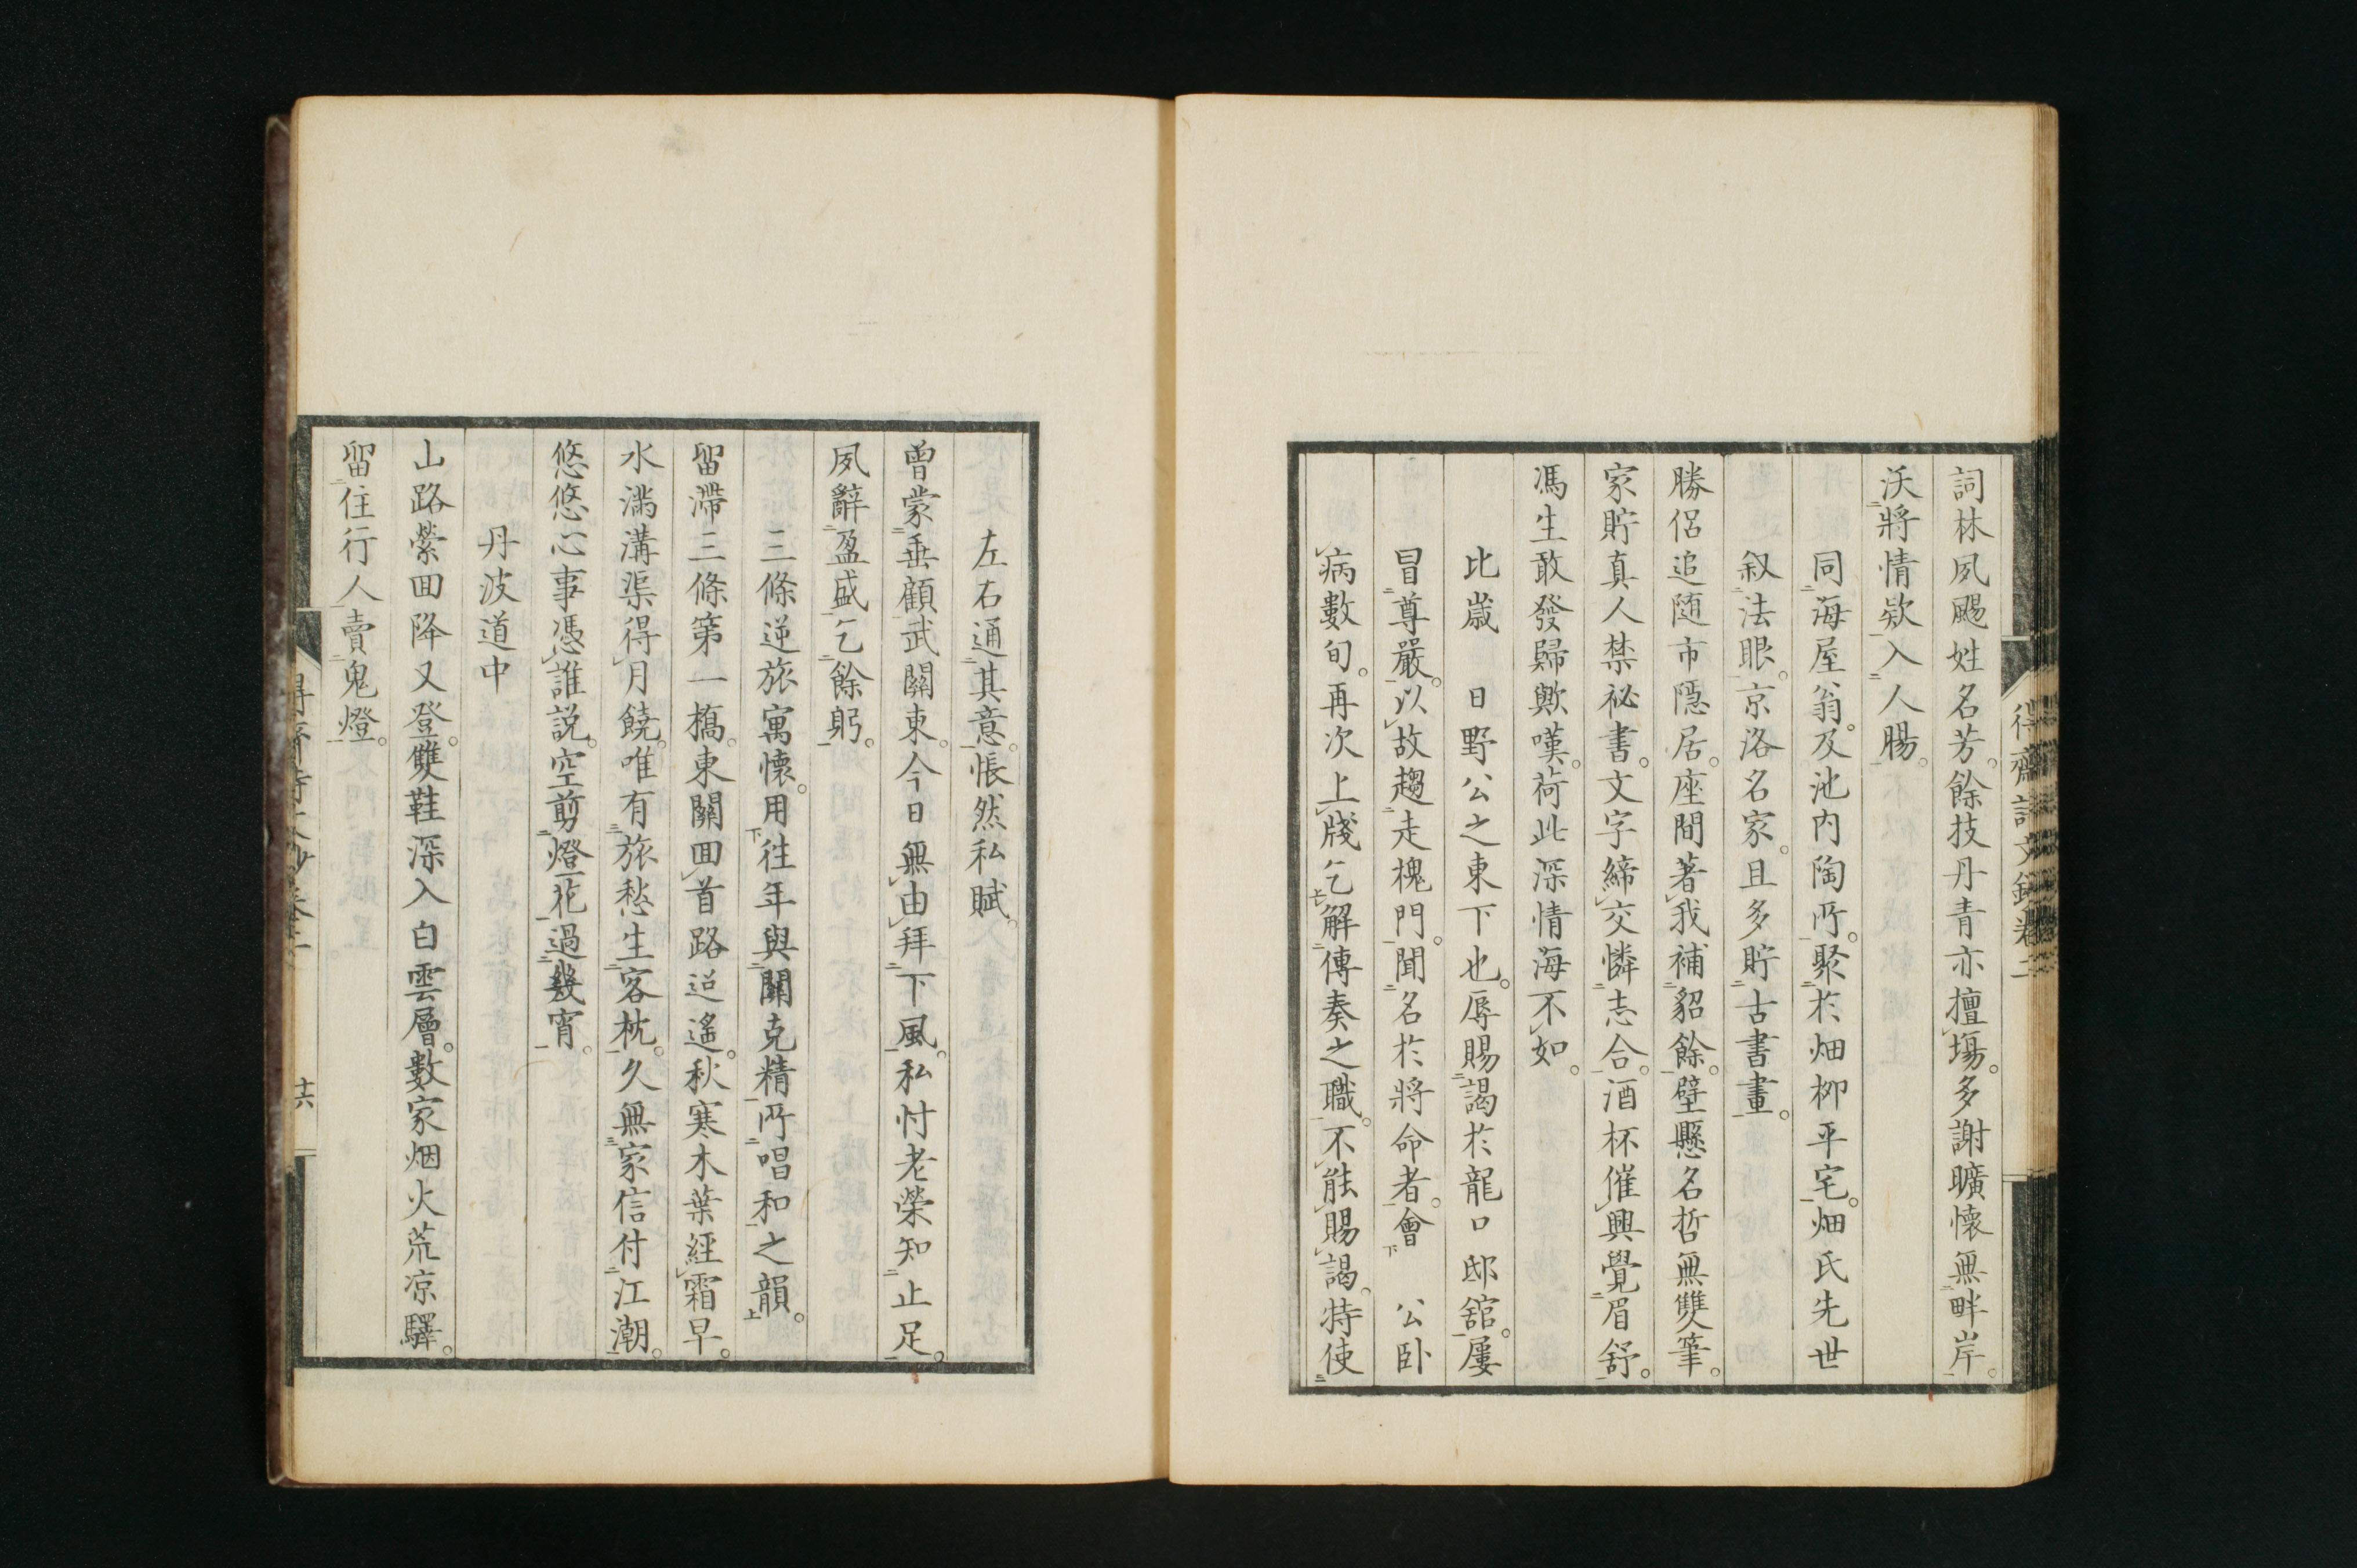 詞林夙颺姓名芳。餘技丹青亦擅場。多謝曠懷無畔岸。
沃將情欵入人腸。
同海屋翁。及池内陶所。聚於畑柳平宅。畑氏先世
叙法眼。京洛名家。且多貯古書畫。
勝侶追随市隠居。座間著我補貂餘。壁懸名哲無雙筆。
家貯真人禁祕書。文字締交憐志合。酒杯催興覺眉舒。
馮生敢發歸歟嘆。荷此深情海不如。
比歳 日野公之東下也。辱賜謁於龍口邸舘。屢
冒尊嚴。以故趨走槐門。聞名於將命者。會 公卧
病數旬。再次上牋乞解傳奏之職。不能賜謁。特使
左右通其意。悵然私賦。
曾蒙垂顧武關東。今日無由拜下風。私忖老榮知止足。
夙辭盈盛乞餘躬。
三條逆旅寓懷。用往年與關克精所唱和之韻。
留滯三條第一橋。東關回首路迢遙。秋寒木葉經霜早。
水滿溝渠得月饒。唯有旅愁生客枕。久無家信付江潮。
悠悠心事憑誰説。空剪燈花過幾宵。
丹波道中
山路縈回降又登。雙鞋深入白雲層。數家烟火荒凉驛。
留住行人賣鬼燈。
十六